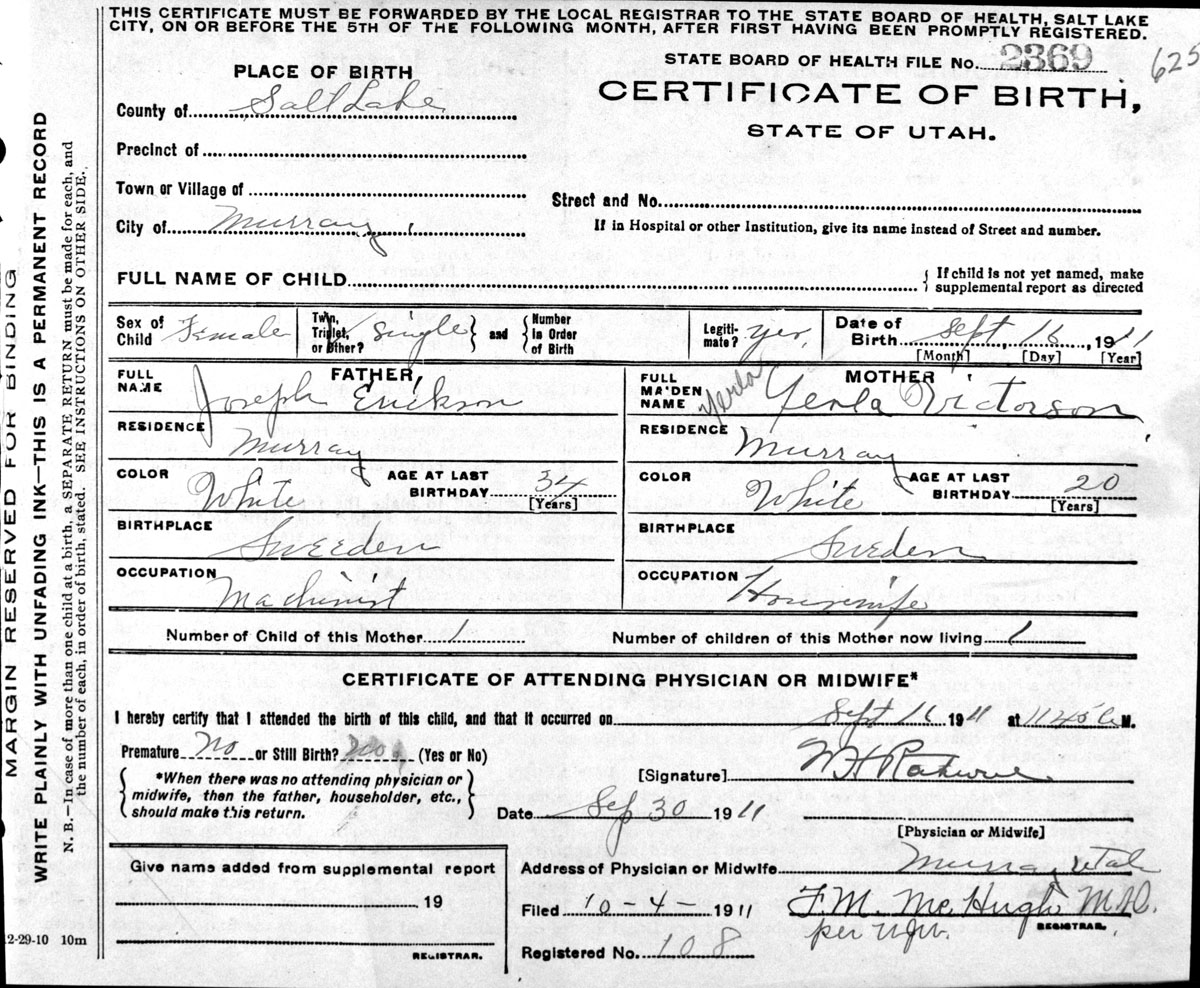 THIS CERTIFICATE MUST BE FORWARDED BY THE LOCAL REGISTRAR TO THE STATE BOARD OF HEALTH, SALT LAKE
CITY, ON OR BEFORE THE 5TH OF THE FOLLOWING MONTH, AFTER FIRST HAVING BEEN PROMPTLY REGISTERED.
STATE BOARD OF HEALTH FILE No. 2369
625
CERTIFICATE OF BIRTH,
STATE OF UTAH.
PLACE OF BIRTH
County of Salt Lake
Precinct of
Town or Village of
City of Murray
Street and No.
If in Hospital or other Institution, give its name instead of Street and number.
FULL NAME OF CHILD
If child is not yet named, make
supplemental report as directed
Sex of Child Female
Twin, Triplet, or Other? Single and Number in Order of Birth
Legitimate? yes
Date of Birth Sept 16, 1911
[Month] [Day] [Year]
FATHER
FULL NAME Joseph Erickson
RESIDENCE Murray
COLOR White AGE AT LAST BIRTHDAY 34 [Years]
BIRTHPLACE Sweden
OCCUPATION Machinist
MOTHER
FULL MAIDEN NAME Yerla Yerla Victorson
RESIDENCE Murray
COLOR White AGE AT LAST BIRTHDAY 20 [Years]
BIRTHPLACE Sweden
OCCUPATION Housewife
Number of Child of this Mother 1
Number of children of this Mother now living 1
CERTIFICATE OF ATTENDING PHYSICIAN OR MIDWIFE*
I hereby certify that I attended the birth of this child, and that it occurred on Sept 16 1911 at 1145 a M.
Premature No or Still Birth? No (Yes or No)
*When there was no attending physician or
midwife, then the father, householder, etc.,
should make this return.
[Signature]
Date Sep 30 1911
[Physician or Midwife]
Give name added from supplemental report
19
REGISTRAR.
Address of Physician or Midwife Murray Utah
Filed 10-4-1911 F. M. McHugh M.D.
per
REGISTRAR.
Registered No. 108
MARGIN RESERVED FOR BINDING
WRITE PLAINLY WITH UNFADING INK—THIS IS A PERMANENT RECORD
N. B.—In case of more than one child at a birth, a SEPARATE RETURN must be made for each, and
the number of each, in order of birth, stated. SEE INSTRUCTIONS ON OTHER SIDE.
2-29-10 10m